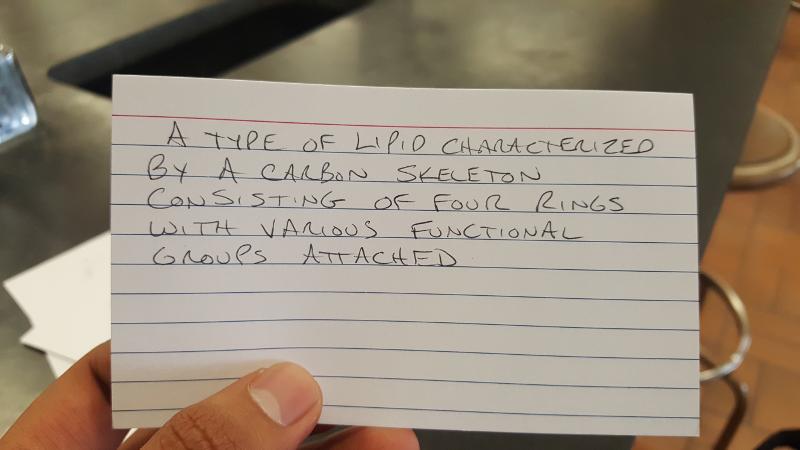 A TYPE OF LIPID CHARACTERIZED
BY A CARBON SKELETON
CONSISTING OF FOUR RINGS
WITH VARIOUS FUNCTIONAL
GROUPS ATTACHED